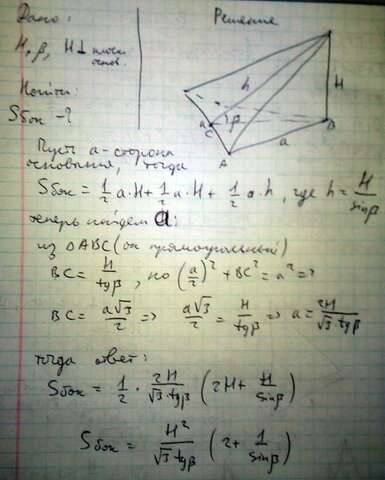 Дано:
H, β, H ⊥ плоск. основ.
Найти:
Sбок - ?
Решение
h
H
a
C
β
B
A
a
Пусть a - сторона
основания, тогда
Sбок = 1/2 a·H + 1/2 a·H + 1/2 a·h, где h = H/sinβ
теперь найдем a:
из △ABC (он прямоугольный)
BC = H/tgβ, но (a/2)² + BC² = a² =>
BC = a√3/2 => a√3/2 = H/tgβ => a = 2H/√3·tgβ
тогда ответ:
Sбок = 1/2 · 2H/√3·tgβ (2H + H/sinβ)
Sбок = H²/√3·tgβ (2 + 1/sinβ)